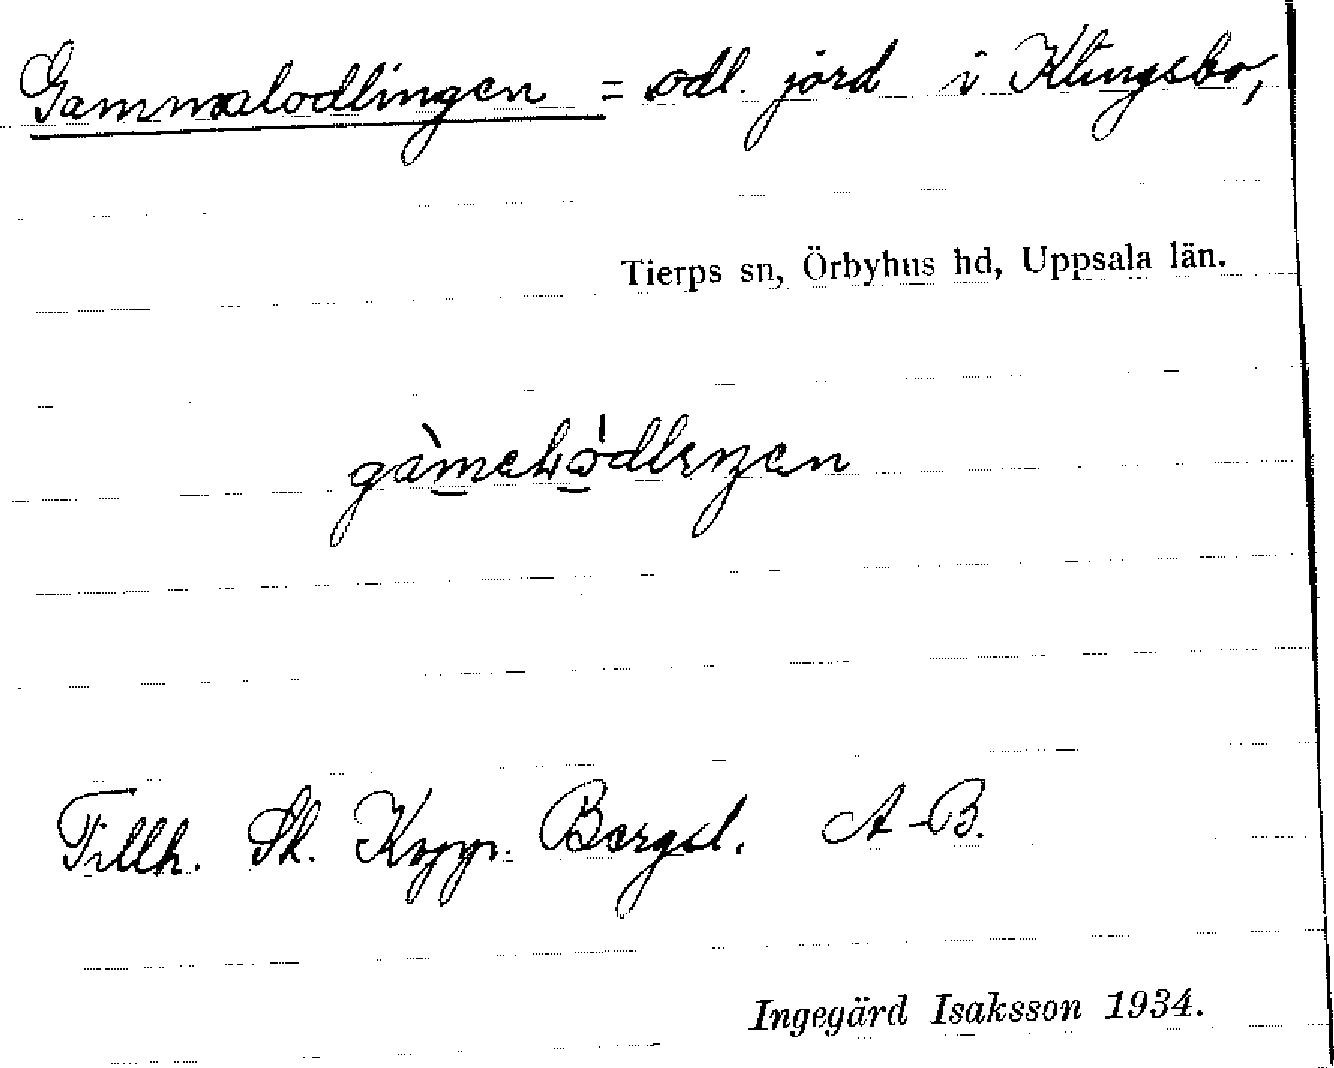 Gammalodlingen = odl. jord i Klingsbo,
Tierps sn, Örbyhus hd, Uppsala län.
Tillh. St. Kopp. Bergsl. A-B.
Ingegärd Isaksson 1934.